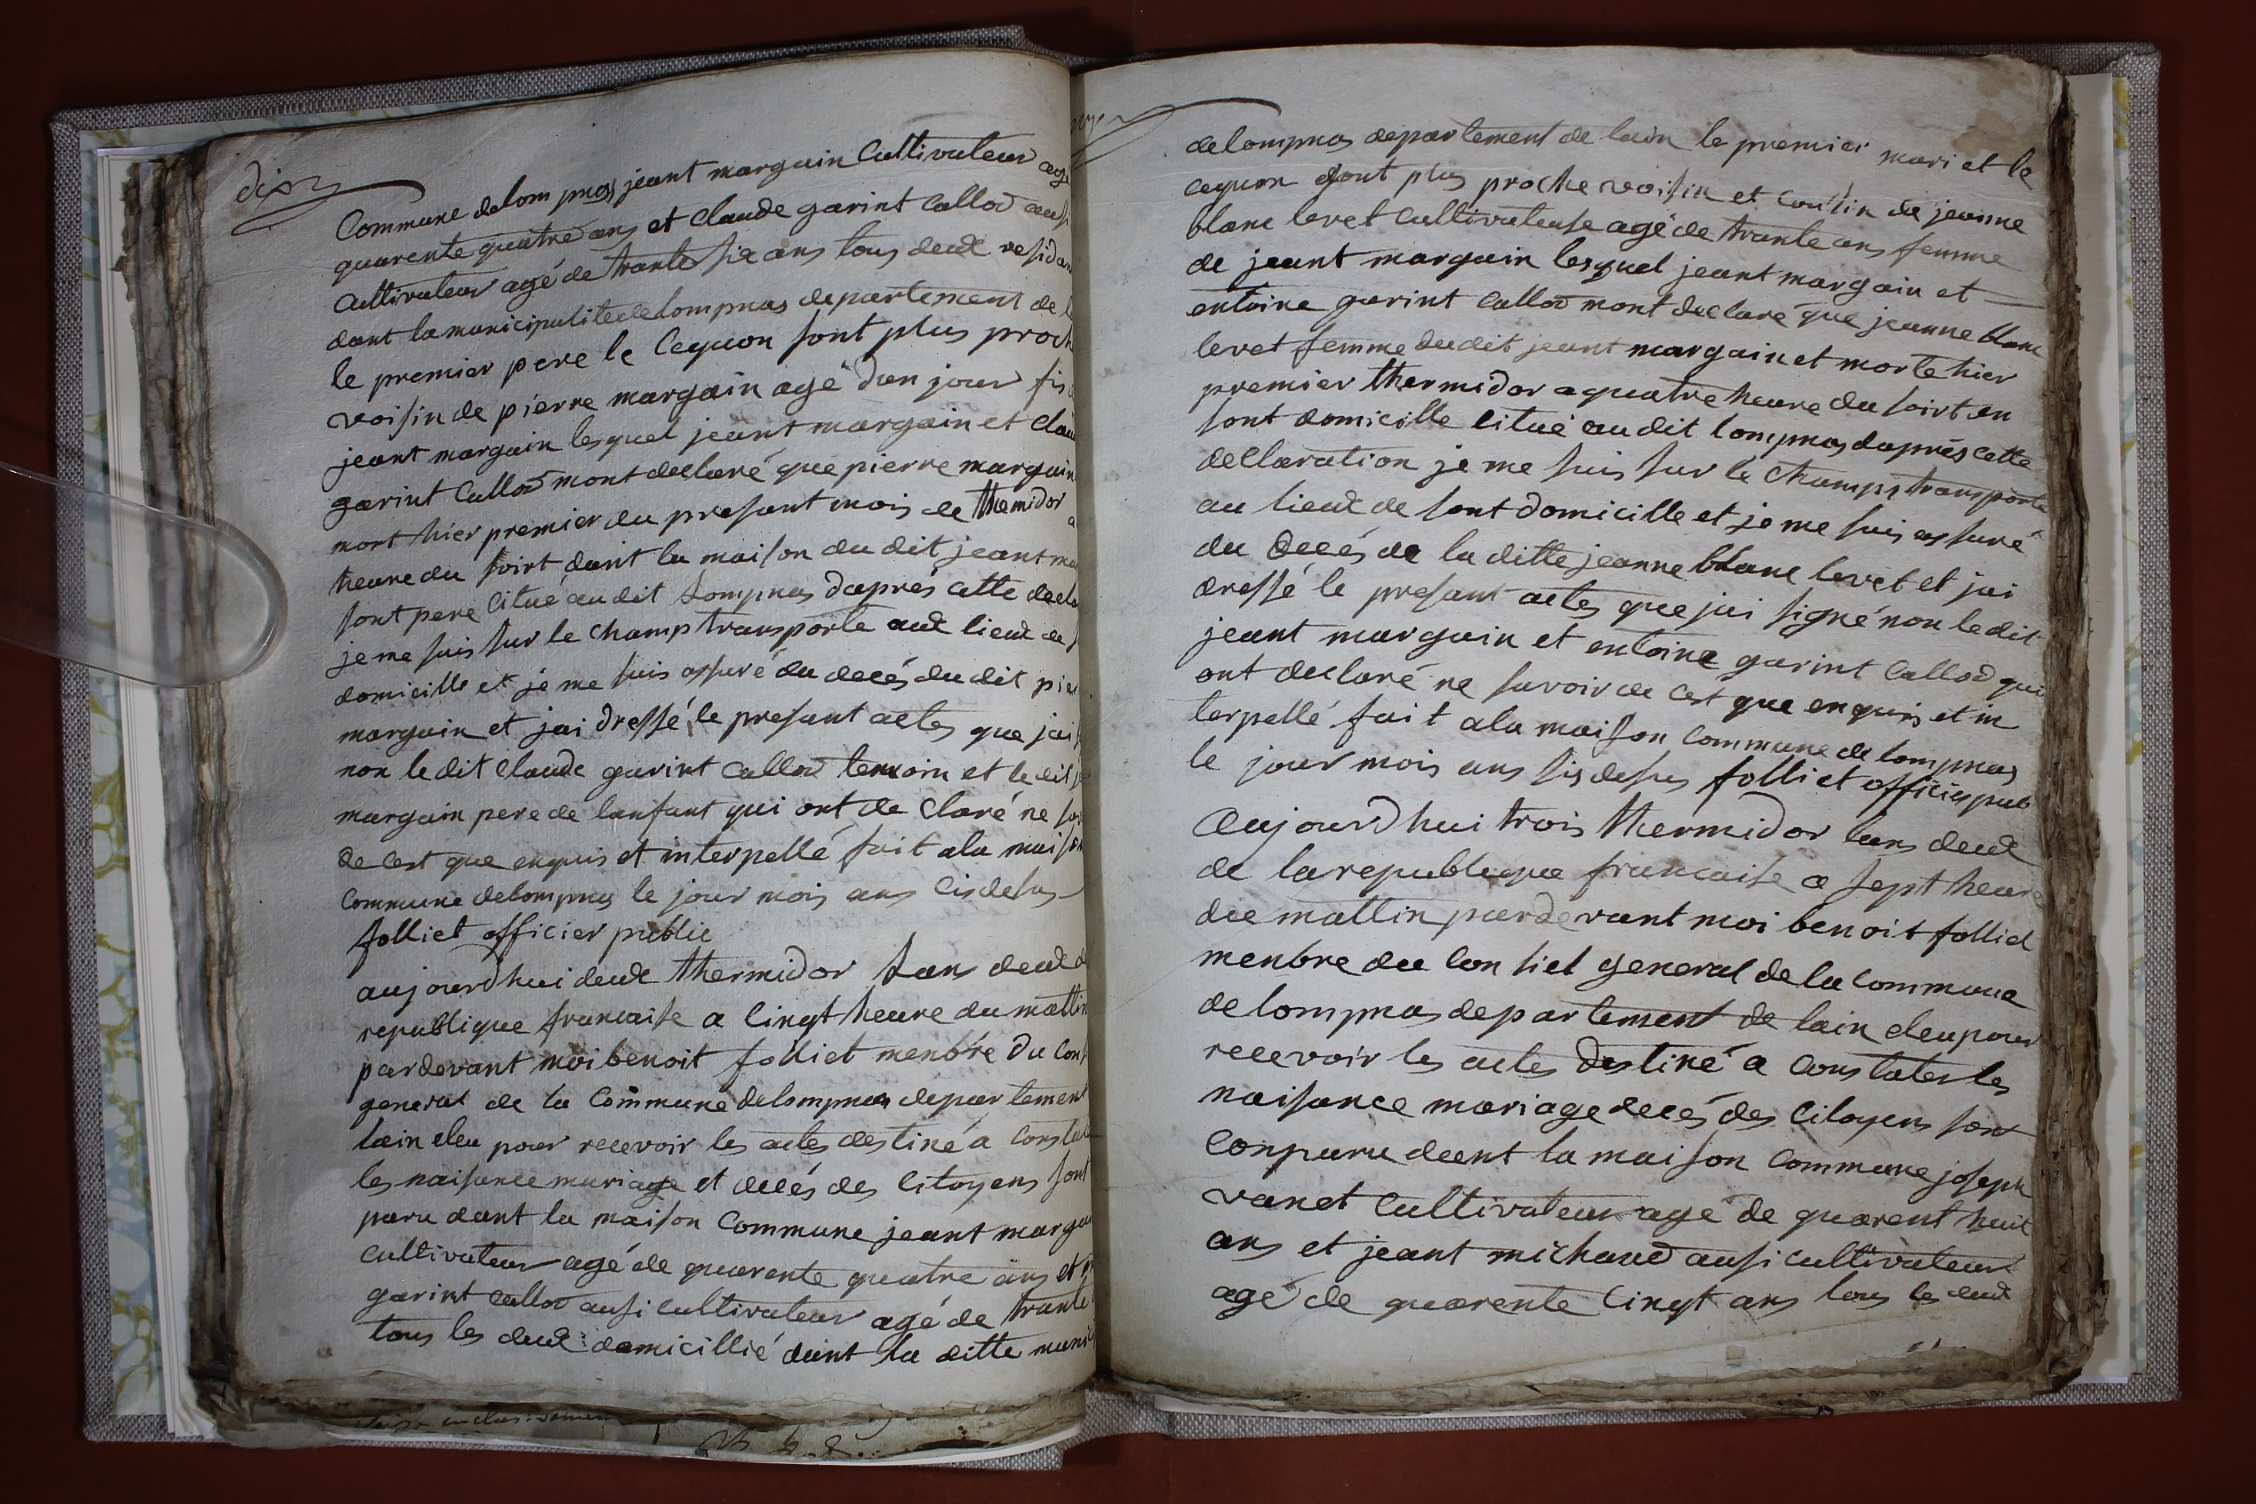 dix
Commune delompnas jeant margain Cultivateur agé
quarente quatre ans et claude garint Callod ausi
Cultivateur agé de trante six ans tous deux residan
dant la municipalite de lompnas departement de l
le premier pere le cequon sont plus proch
voisin de pierre margain agé d'un jour fis
jeant margain lesquel jeant margain et clau
garint Callod mont declaré que pierre margain
mort hier premier du presant mois de themidor a
heure du soirt dant la maison du dit jeant mar
sont pere citué au dit Lompnas daprés cette decla
je me suis sur le champ transporté aux lieux de s
domicille et je me suis assuré du decés du dit pier
margain et jai dressé le presant actes que jai s
non le dit Claude garint Callod temoin et le dit j
margain pere de lanfant qui ont de claré ne sav
de cest que enquis et interpellé fait ala maison
Commune delompnas le jour mois ans cisdesus
folliet officier public
aujourdhui deux thermidor Lans deux d
republique francaise a cinqt heure du mattin
pardevant moi benoit folliet menbre du Cons
general de la Commune delompnas departement
lain eleu pour recevoir les actes destiné a Constat
les naisance mariage et decés des citoyens sont
paru dant la maison Commune jeant margain
cultivateur agé de quarente quatre ans et
garint callod ausi cultivateur agé de trante
tous les deux domicillié dant la ditte munici
delompnas departement de lain le premier mari et le
cequon sont plus proche voisin et cousin de jeanne
blanc levet cultivateuse agé de trante ans femme
de jeant margain lesquel jeant margain et
entoine garint Callod mont declaré que jeanne blanc
levet femme dudit jeant margain et morte hier
premier thermidor a quatre heure du soirt en
sont domicille citué au dit lompnas daprés cette
declaration je me suis sur le champs transporté
au lieux de sont domicille et je me suis assuré
du decés de la ditte jeanne blanc levet et jai
dressé le presant actes que jai signé non le dit
jeant margain et entoine garint callod qui
ont declaré ne savoir de cest que enquis et in
terpellé fait ala maison commune de lompnas
le jour mois ans sisdesus folliet officier pub
Aujourdhui trois thermidor lans deux
de la republique francaise a sept heure
du mattin pardevant moi benoit folliet
menbre du Consiel general de la commune
delompnas departement de lain eleu pour
recevoir les actes destiné a Constater les
naisance mariage decés des Citoyens sont
Conparu dent la maison Commune joseph
vanet Cultivateur agé de quarent huit
ans et jeant michaud ausi cultivateur
agé de quarente Cinqt ans tous les deux